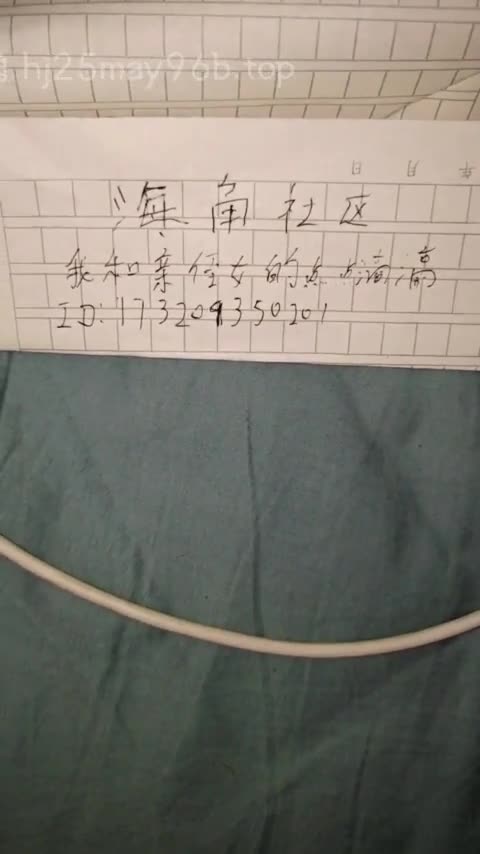 hj25may96b.top
年 月 日
海角社区
我和亲侄女的点点滴滴
ID:173209350201